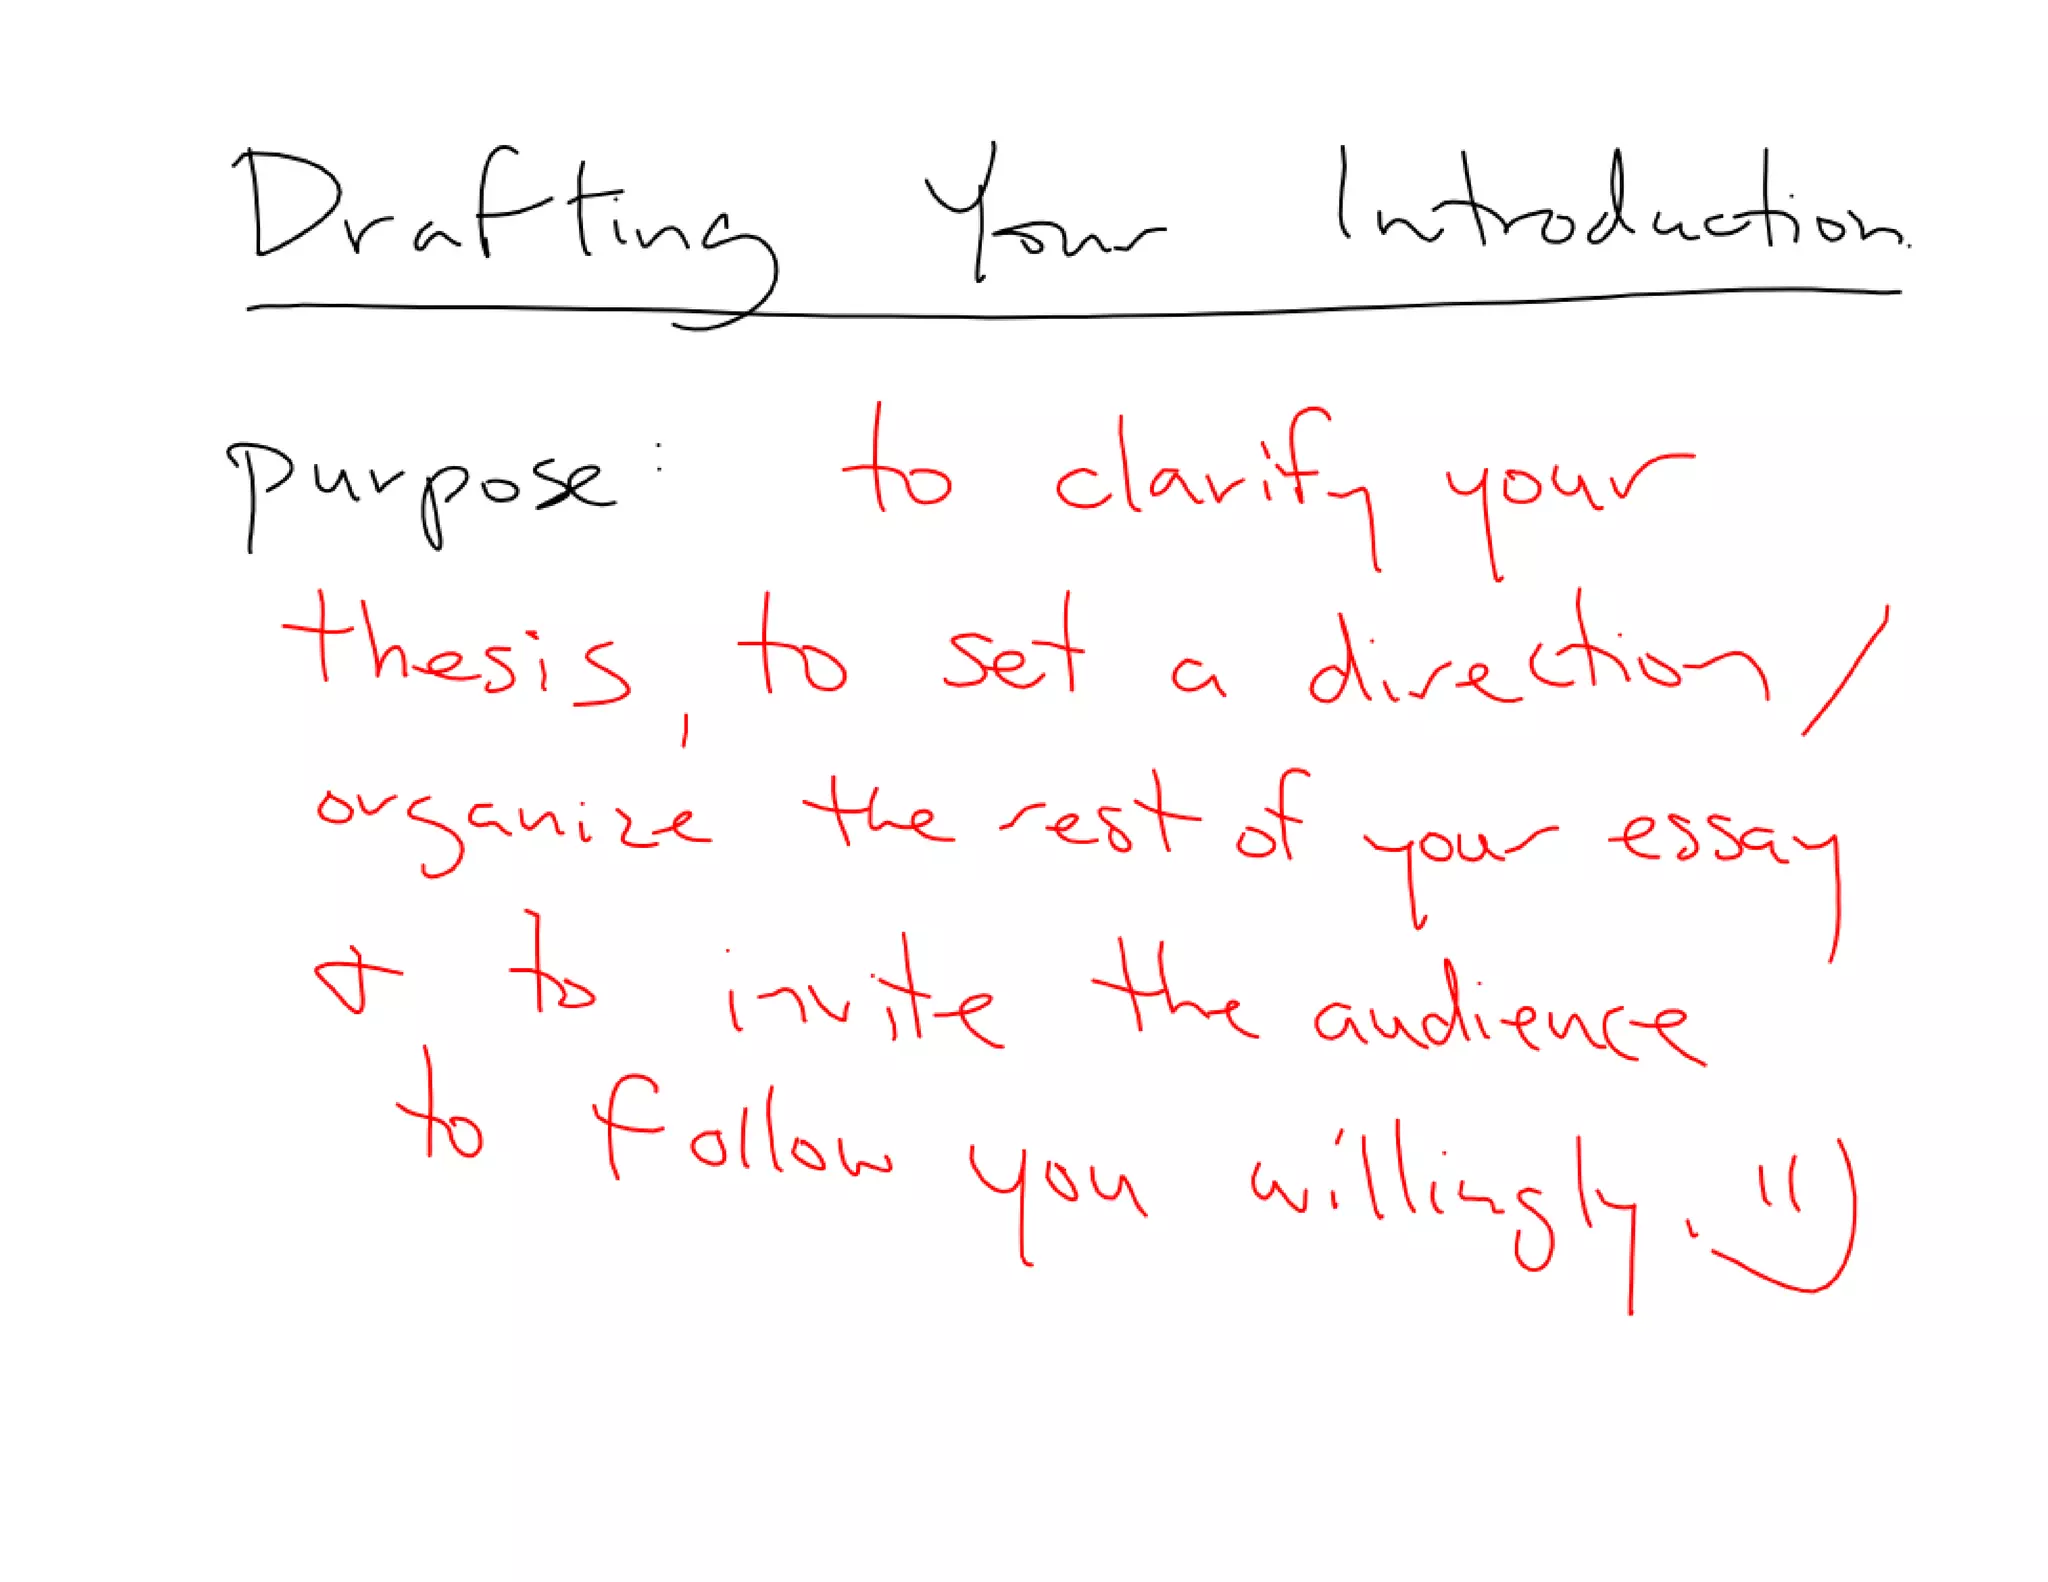 Drafting Your Introduction.
purpose: to clarify your
thesis, to set a direction/
organize the rest of your essay
+ to invite the audience
to follow you willingly. :)